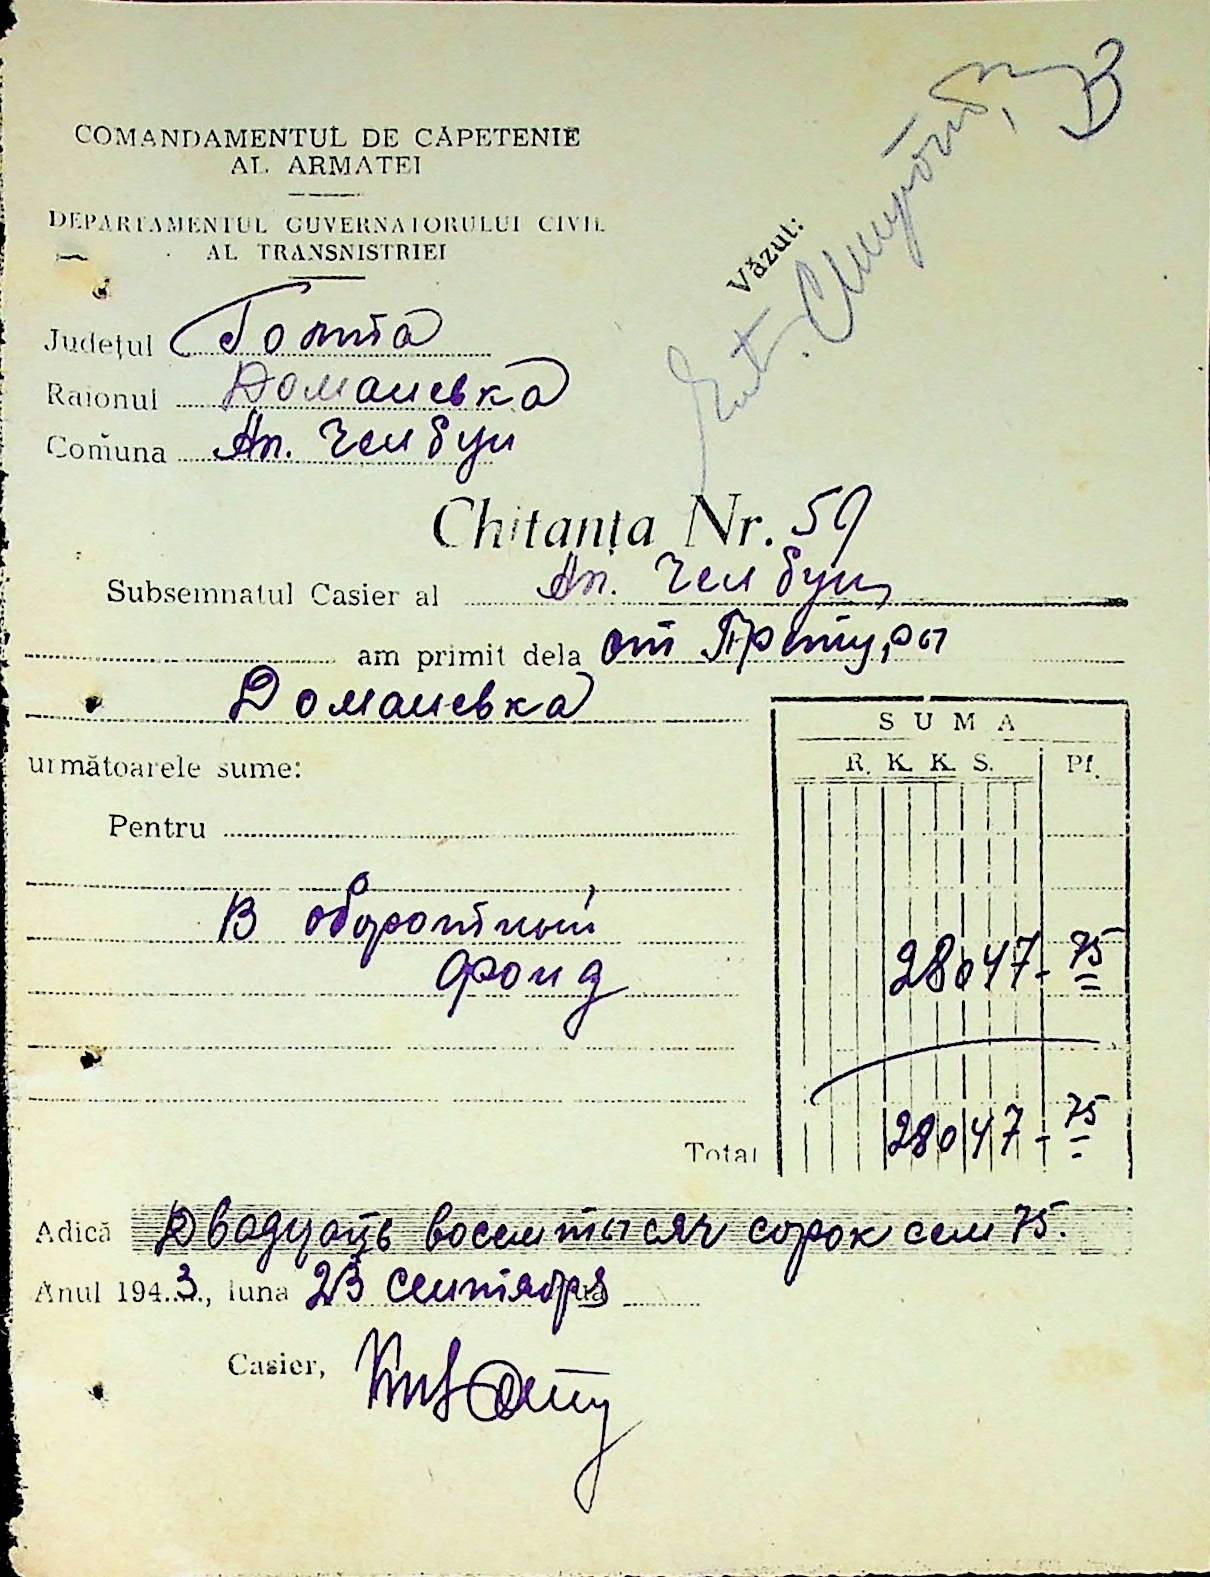 COMANDAMENTUL DE CĂPETENIE
AL ARMATEI
DEPARTAMENTUL GUVERNATORULUI CIVIL
AL TRANSNISTRIEI
Văzut:
Județul Голта
Raionul Доманевка
Comuna Ап. Челбул
Chitanța Nr. 59
Subsemnatul Casier al Ап. Челбул
am primit dela от Претуры
Доманевка
SUMA
următoarele sume:
R. K. K. S. Pf.
Pentru
В оборотный
фонд 28047 - 75
Total 28047 - 75
Adică Двадцать восем тысяч сорок сем 75.
Anul 1943, luna 23 сентября
Casier,